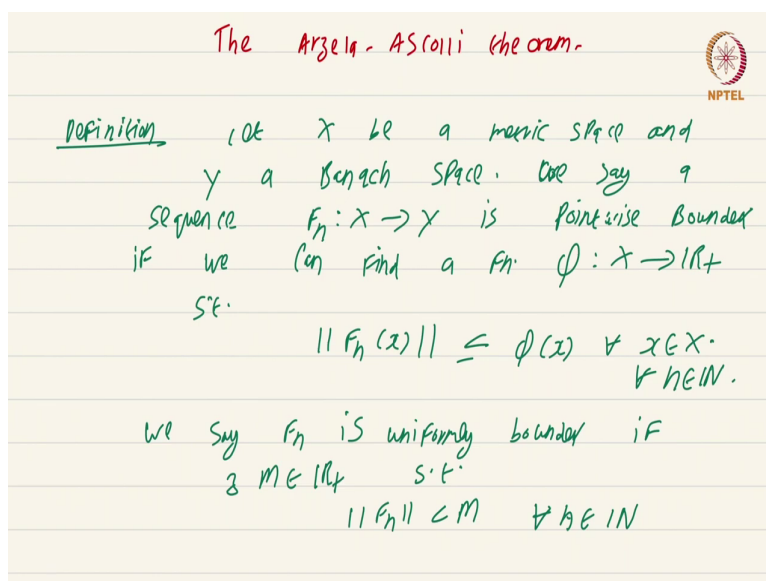 The Arzela-Ascolli theorem.
NPTEL
Definition Let X be a metric space and
Y a Banach space. We say a
sequence Fₙ : X → Y is Pointwise Bounded
if we can find a Fn. φ : X → ℝ+
s.t.
||Fₙ(x)|| ≤ φ(x) ∀ x ∈ X.
∀ n ∈ ℕ.
We say Fₙ is uniformly bounded if
∃ M ∈ ℝ+ s.t.
||Fₙ|| < M ∀ n ∈ ℕ